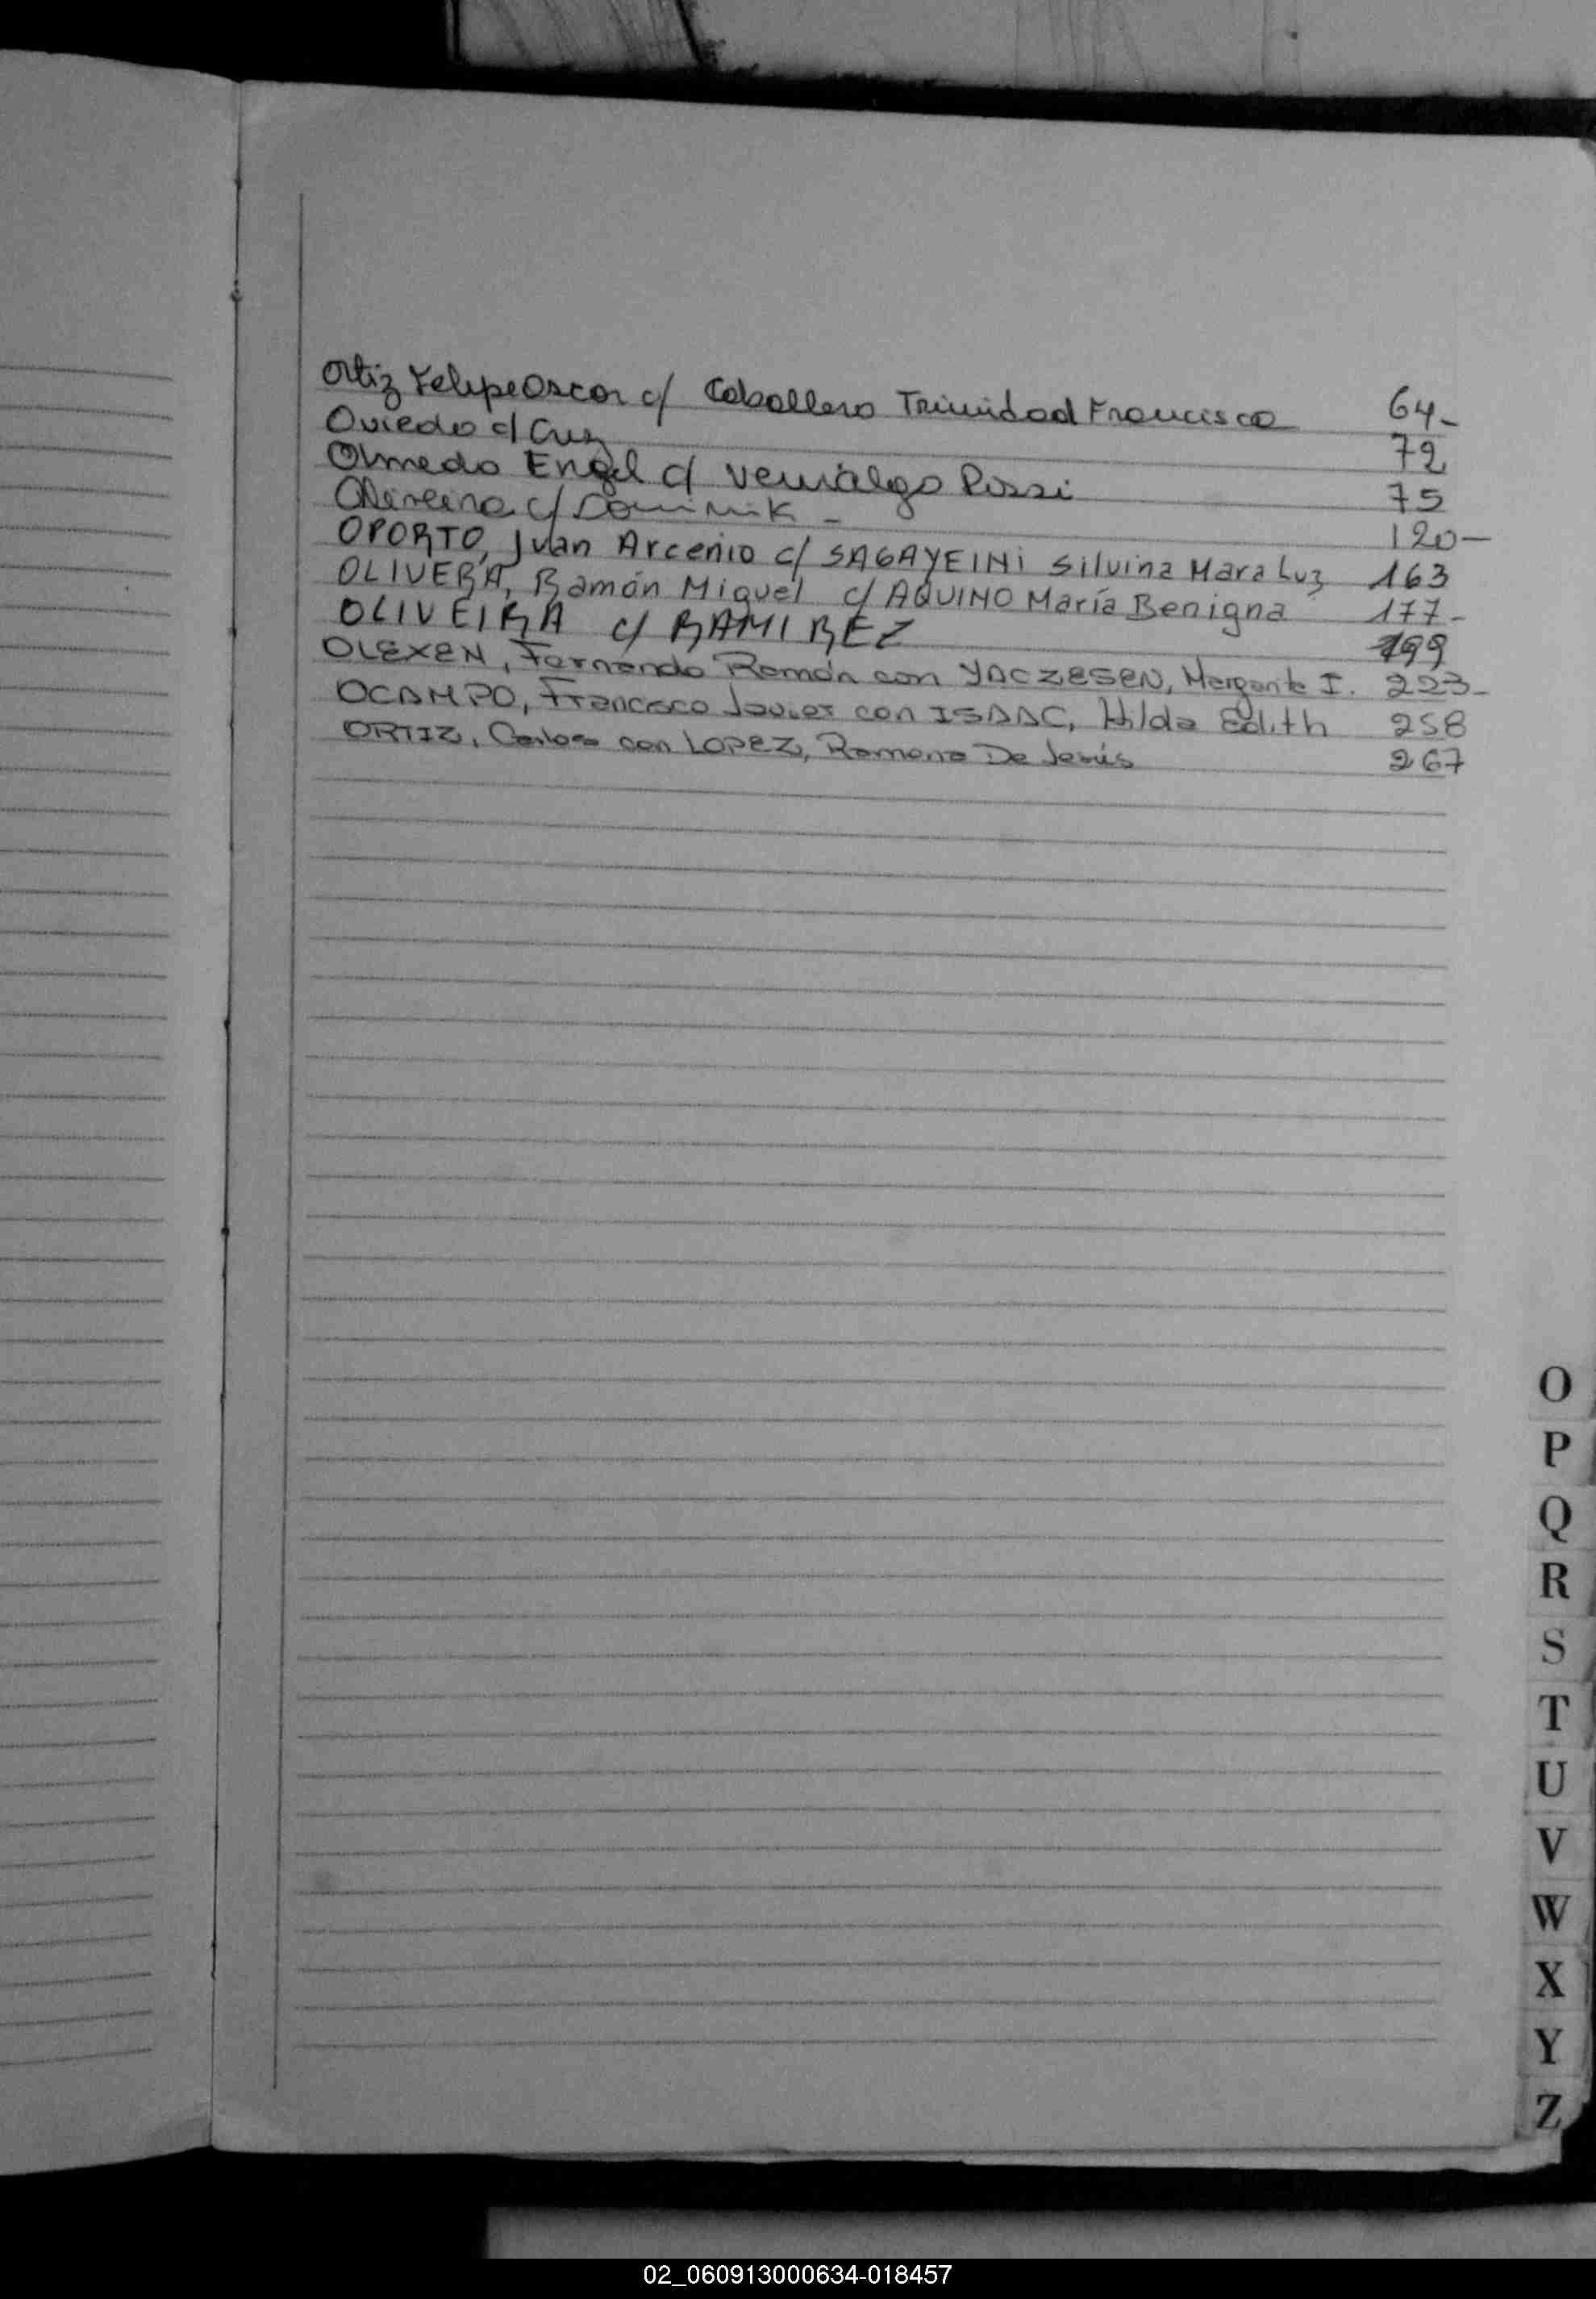 Ortiz Felipe Oscar c/ Caballero Trinidad Francisca 64-
Oviedo c/ Cruz 72
Olmedo Engel c/ Vernalgo Rossi 75
Oliveira c/ Dominik - 120-
OPORTO, Juan Arcenio c/ SAGAYEINI Silvina Mara Luz 163
OLIVERA, Ramón Miguel c/ AQUINO María Benigna 177-
OLIVEIRA c/ RAMIREZ 199
OLEXEN, Fernando Ramón con YACZESEN, Margarita I. 223-
OCAMPO, Francisco Javier con ISAAC, Hilda Edith 258
ORTIZ, Carlos con LOPEZ, Ramona De Jesús 267
O
P
Q
R
S
T
U
V
W
X
Y
Z
02_060913000634-018457